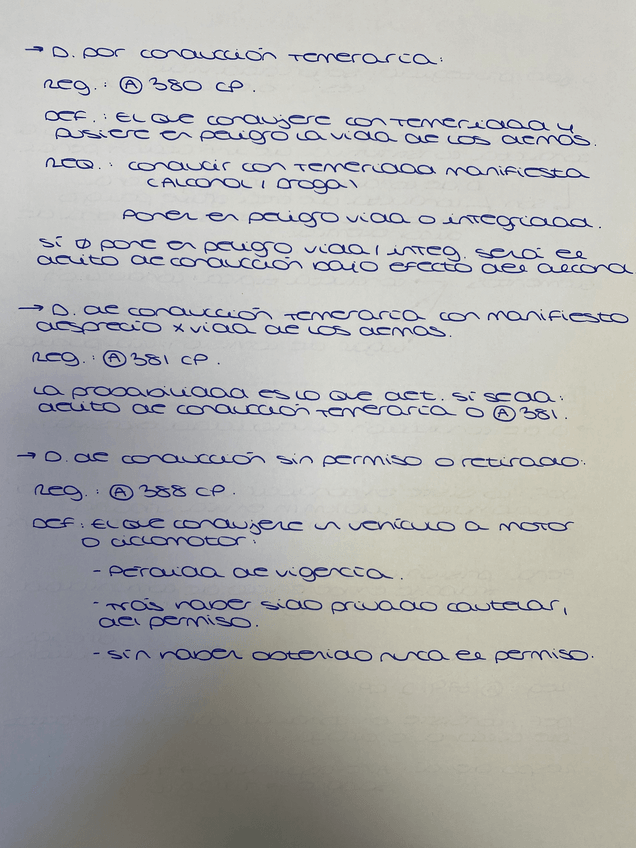 → D. por conducción temeraria:
Reg.: Ⓐ 380 CP.
Def.: El que condujere con temeridad y
pusiere en peligro la vida de los demás.
Req.: conducir con temeridad manifiesta
(Alcohol / Droga)
Poner en peligro vida o integridad.
Si Ø pone en peligro vida / integ. será el
delito de conducción bajo efecto del alcohol
→ D. de conducción temeraria con manifiesto
desprecio x vida de los demás.
Reg.: Ⓐ 381 CP.
La probabilidad es lo que det. si se da:
delito de conducción temeraria o Ⓐ 381.
→ D. de conducción sin permiso o retirado:
Reg.: Ⓐ 388 CP.
Def: El que condujere un vehículo a motor
o ciclomotor:
- Pérdida de vigencia.
- Trás haber sido privado cautelar,
del permiso.
- Sin haber obtenido nunca el permiso.